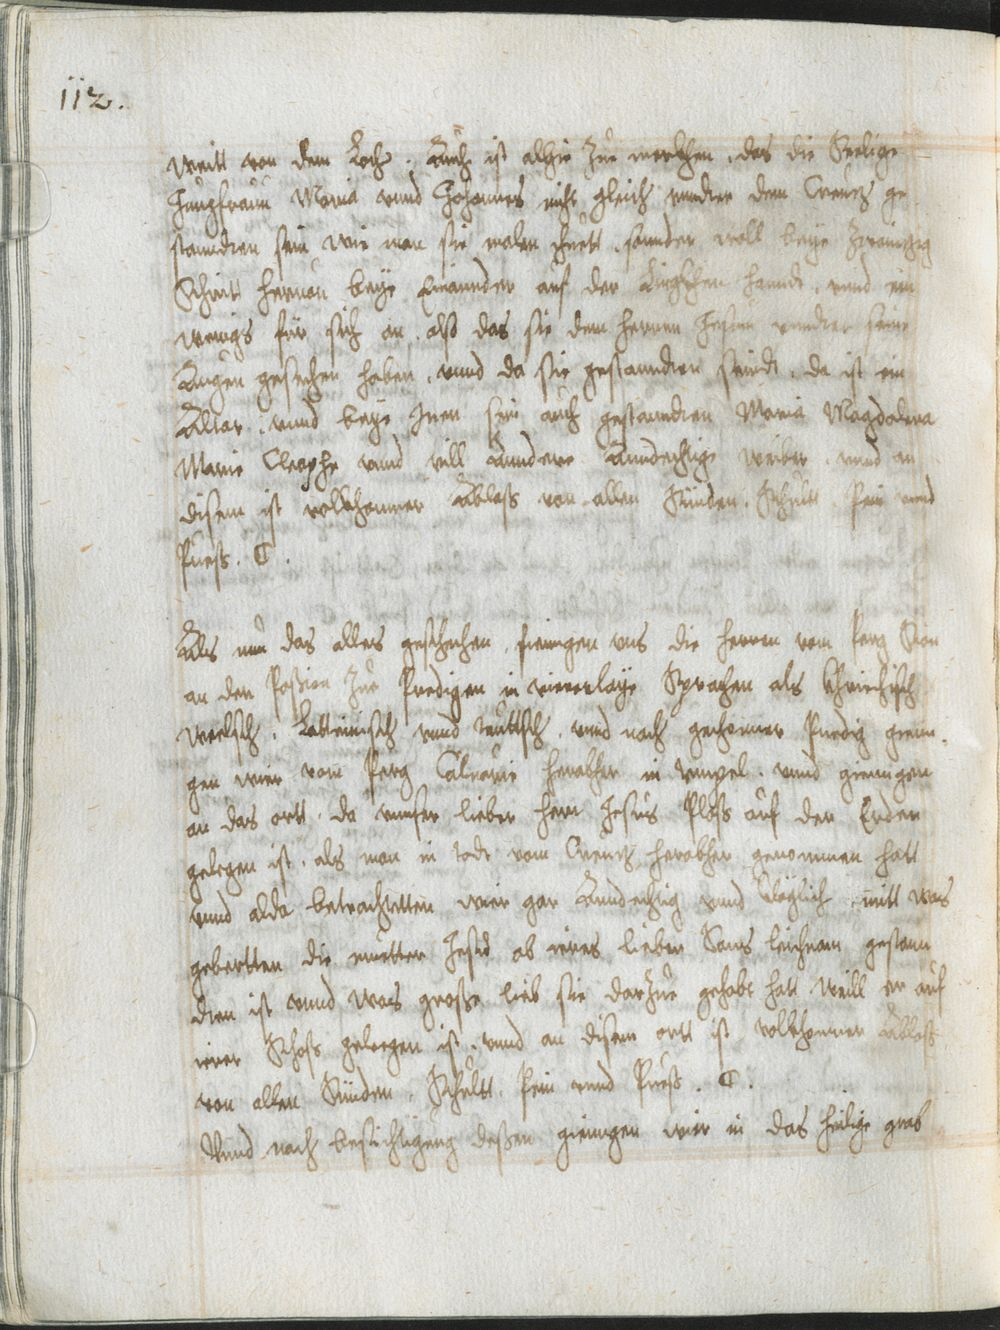 112.
weitt von dem Loch. Auch ist alhie zue merckhen, das die Seelige
Jungfrauw Maria vnnd Johannes nicht gleich vnnder dem Creutz ge
stannden sein wie man sie malen thuett, sonnder woll beye zwainzig
Schritt hernon beye Einannder auf der Linckhen hanndt, vnnd ein
wenigs für sich an, also das sie dem herren Jesum vnnder seine
Augen gesechen haben, vnnd da sie gestannden seindt, da ist ein
Altar, vnnd beye Inen sein auch gestannden Maria Magdalena
Maria Cleophe vnnd vill Anndere Anndechtige weiber, vnnd an
disem ist volkhomner Ablaß von allen Sünden, Schult, Pein vnnd
Pueß. C.
Als nun das alles geschechen, fiengen vns die herren vom Perg Sion
an den Passion Zue Predigen in viererlaye Sprachen als Khriechisch
Welsch, Lattinisch vnnd teuttsch, vnnd nach gethonner Predig gien¬
gen wier vom Perg Caluarie herabher in tempel, vnnd giengen
an das ortt, da vnnser lieber herr Jesus Ploß auf der Erden
gelegen ist, als man in todt vom Creutz herabher genommen hatt
vnnd alda betrachtetten wier gar Anndechtig vnnd Cläglich, mitt was
geberten die muetter Jesu ob ires lieben Sons leichnam gestann
den ist vnnd was grosse lieb sie darzue gehabt hatt weill er auf
irer Schoß gelegen ist, vnnd an disem ortt ist volkhomner Ablaß
von allen Sünden, Schultt, Pein vnnd Pueß. C.
Vnnd nach besichtigung dessen giengen wier in das heilige grab